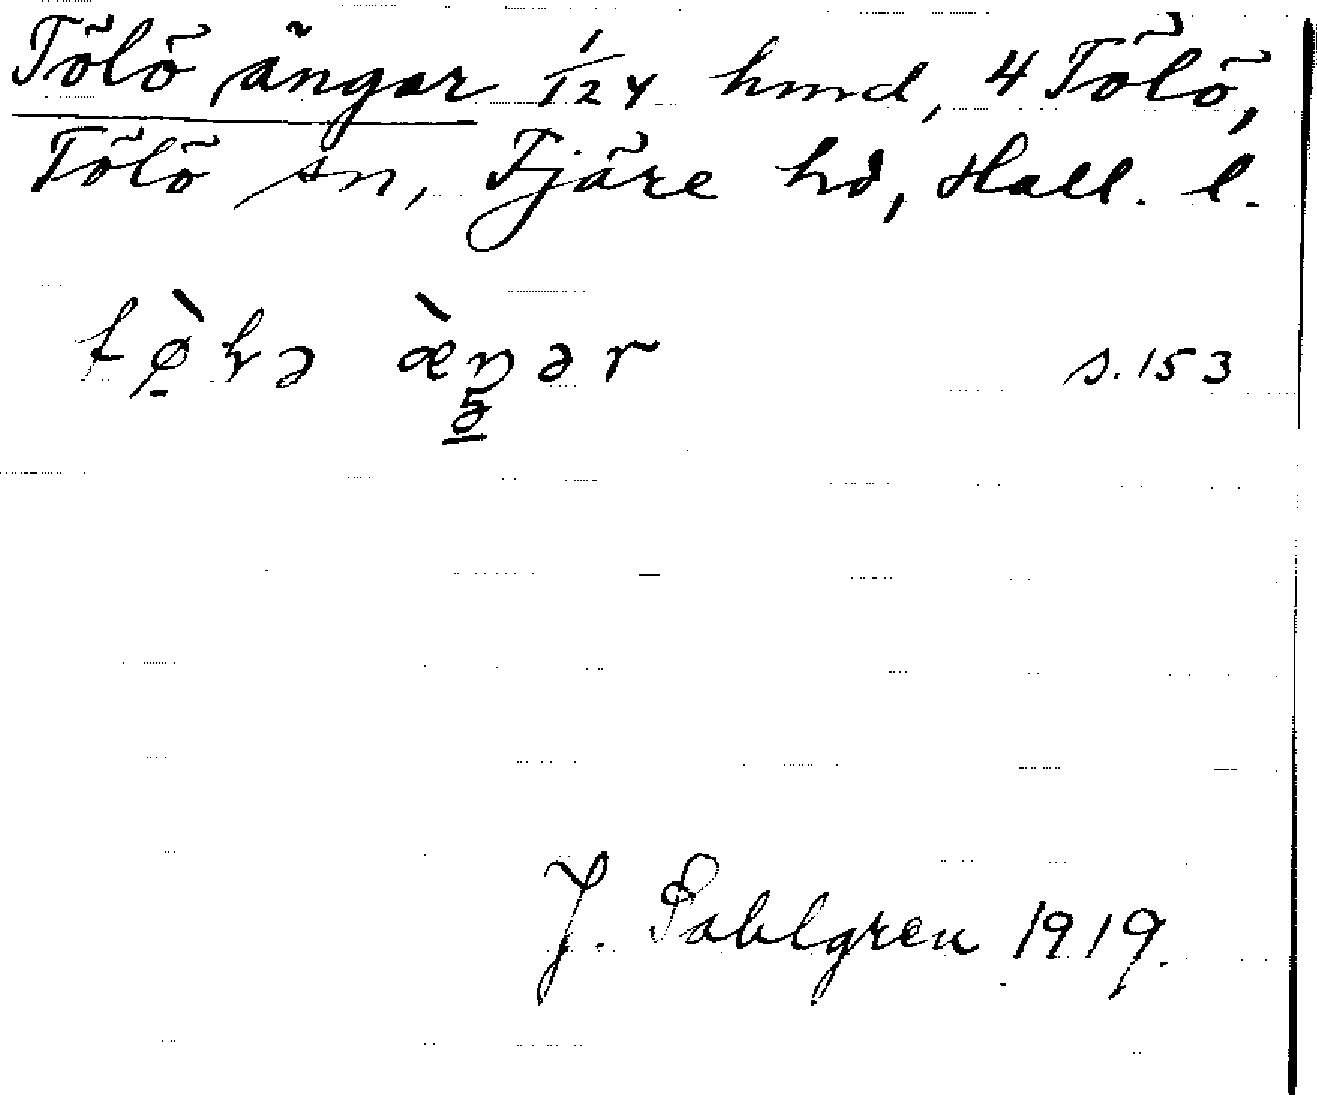 Tölö ängar 1/124 hmd, 4 Tölö,
Tölö sn, Fjäre hd, Hall. l.
s. 153
J. Sahlgren 1919.